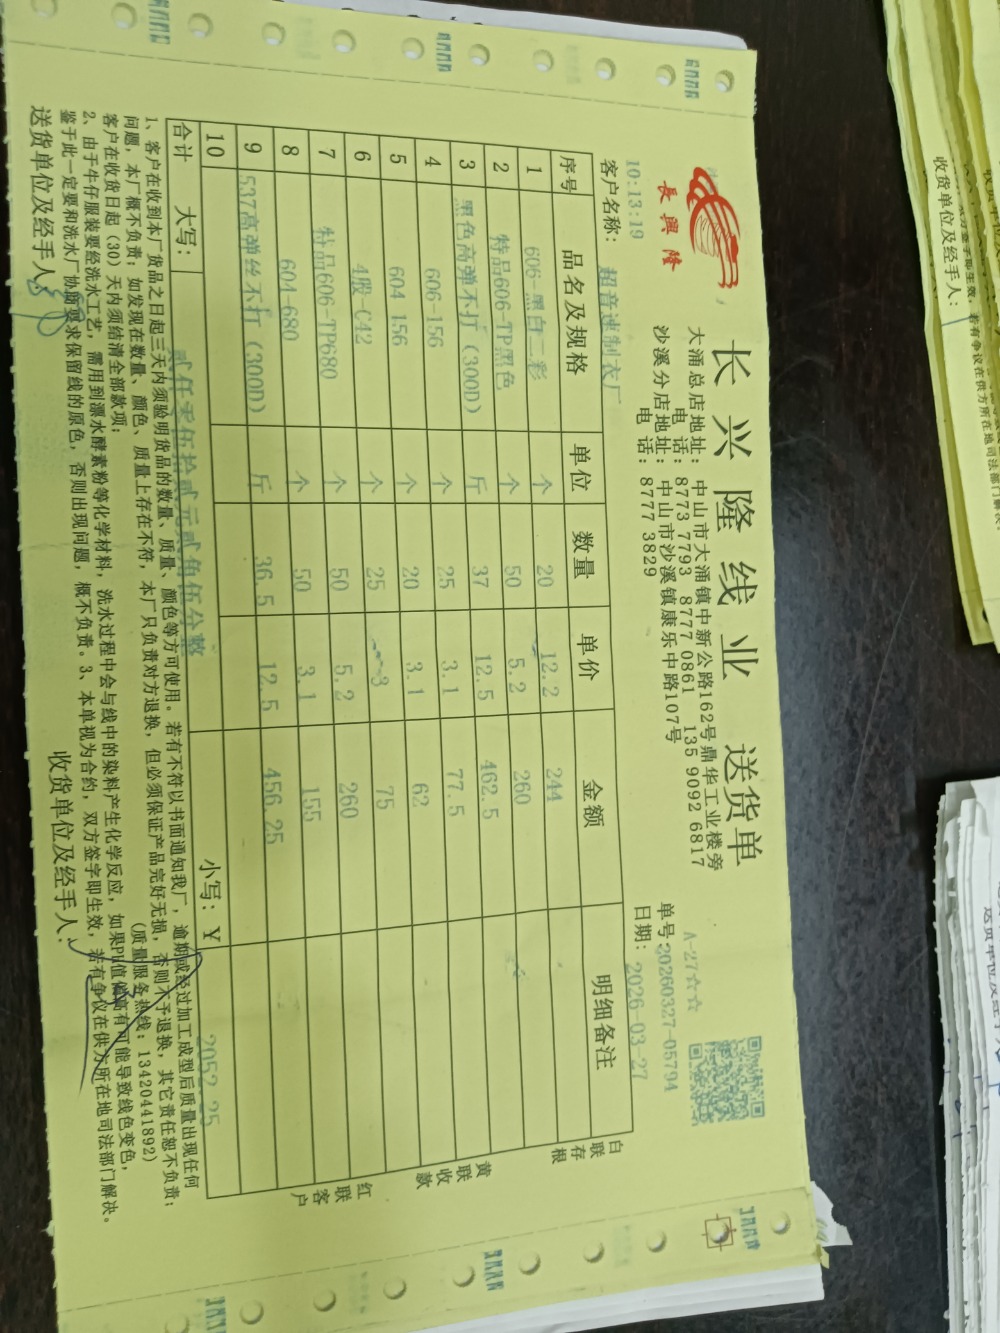 長興隆
长兴隆线业 送货单
大涌总店地址: 中山市大涌镇中新公路162号鼎华工业楼旁
电话: 8773 7793 8777 0861 135 9092 6817
沙溪分店地址: 中山市沙溪镇康乐中路107号
电话: 8777 3829
A-27☆☆
单号:20260327-05794
日期: 2026-03-27
10:13:19
客户名称: 超音速制衣厂
序号 品名及规格 单位 数量 单价 金额 明细备注
1 606-黑白二彩 个 20 12.2 244
2 特品606-TP黑色 个 50 5.2 260
3 黑色高弹不打(300D) 斤 37 12.5 462.5
4 606-156 个 25 3.1 77.5
5 604 156 个 20 3.1 62
6 4股-C42 个 25 3 75
7 特品606-TP680 个 50 5.2 260
8 604-680 个 50 3.1 155
9 537高弹丝不打(300D) 斤 36.5 12.5 456.25
10
合计 大写: 贰仟零伍拾贰元贰角伍分整 小写: Y 2052.25
白联存根
黄联收款
红联客户
1、客户在收到本厂货品之日起三天内须验明货品的数量、质量、颜色等方可使用。若有不符以书面通知我厂,逾期或经过加工成型后质量出现任何
问题,本厂概不负责;如发现在数量、颜色、质量上存在不符,本厂只负责对方退换,但必须保证产品完好无损,否则不予退换,其它责任恕不负责;
客户在收货日起(30)天内须结清全部款项; (质量服务热线:13420441892)
2、由于牛仔服装要经洗水工艺,需用到漂水酵素粉等化学材料,洗水过程中会与线中的染料产生化学反应,如果PH值偏高有可能导致线色变色,
鉴于此一定要和洗水厂协商要求保留线的原色,否则出现问题,概不负责。3、本单视为合约,双方签字即生效,若有争议在供方所在地司法部门解决。
送货单位及经手人: 收货单位及经手人:
收货单位及经手人: